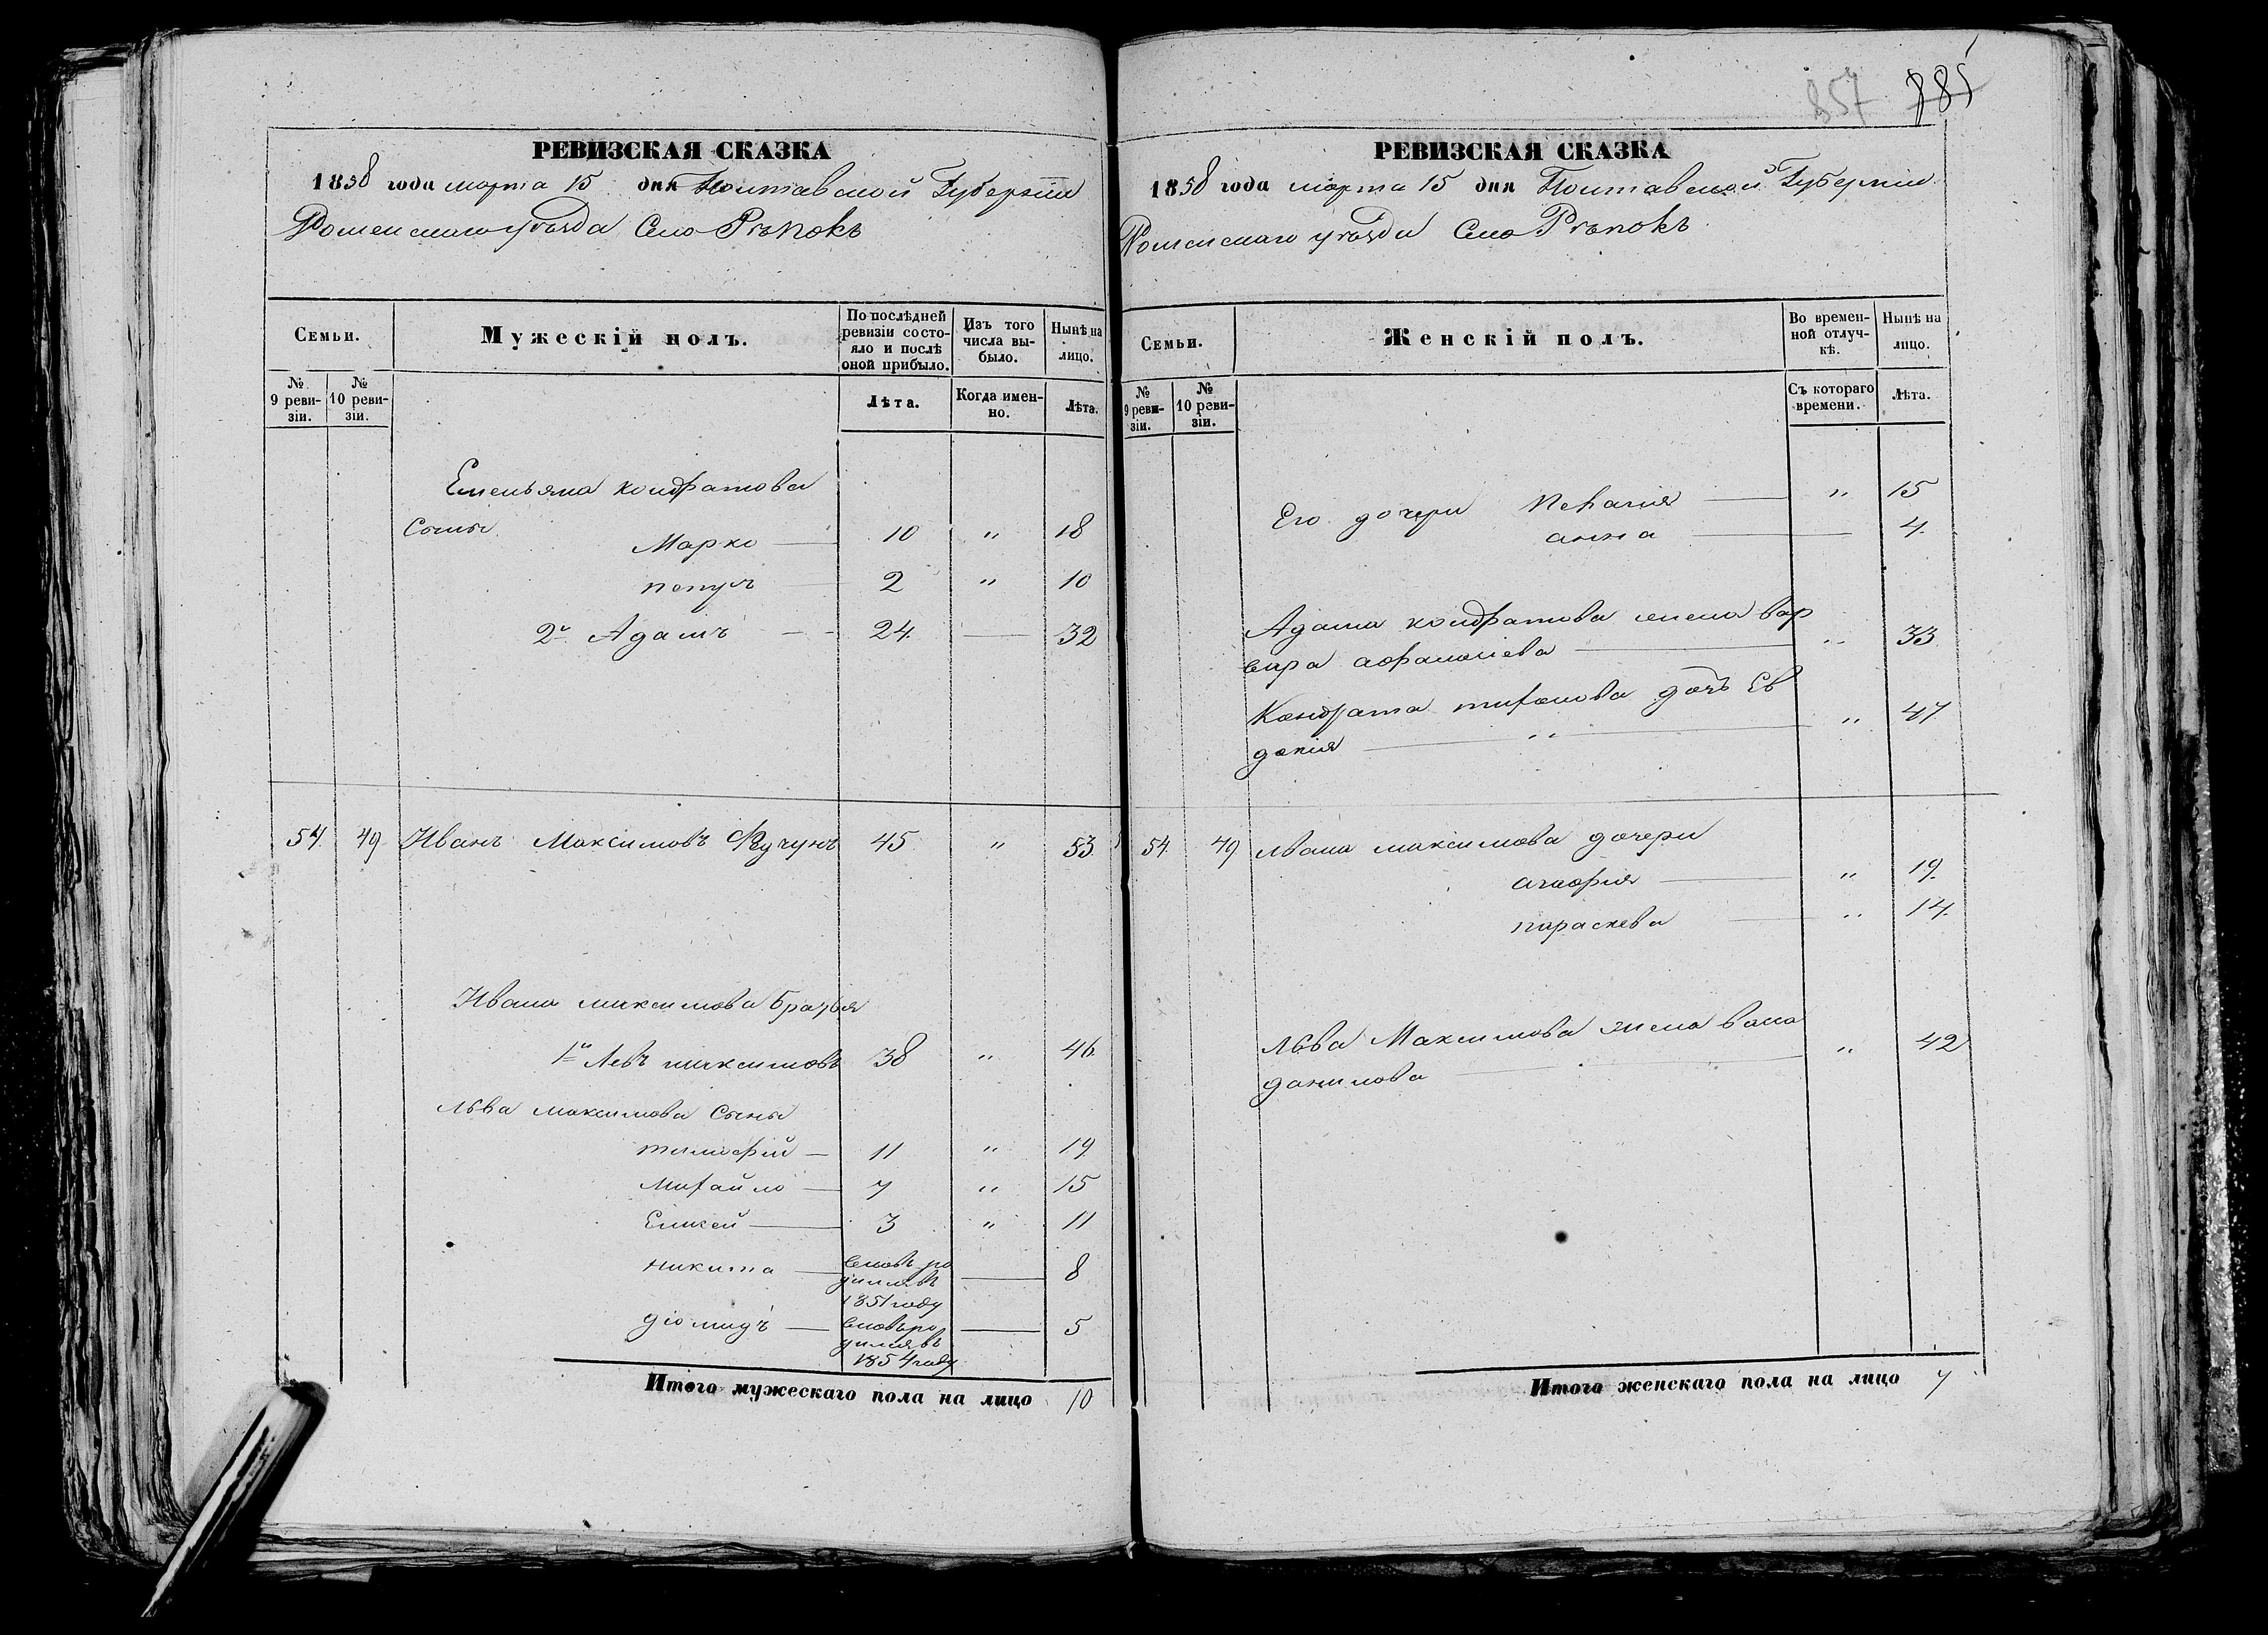 РЕВИЗСКАЯ СКАЗКА
1858 года марта 15 дня Полтавской Губернии
Роменскаго уѣзда Село Рѣпокъ
Семьи.
Мужескій полъ.
По послѣдней ревизіи состояло и послѣ оной прибыло.
Изъ того числа выбыло.
Нынѣ на лицо.
№ 9 ревизіи.
№ 10 ревизіи.
Лѣта.
Когда именно.
Лѣта.
Емельяна кондратова
Сыны
Марко 10 " 18
2 " 10
2й Адамъ 24 32
54 49 Иванъ Максимовъ 45 " 53
Ивана максимова братья
1й Левъ максимовъ 38 " 46
Льва максимова Сыны
тимофій 11 " 19
Михайло 7 " 15
3 " 11
никита вновь родился въ 1851 году 8
діомидъ вновь родился въ 1854 году 5
Итого мужескаго пола на лицо 10
857 885
РЕВИЗСКАЯ СКАЗКА
1858 года марта 15 дня Полтавской Губерніи
Роменскаго уѣзда Село Рѣпокъ
Семьи.
Женскій полъ.
Во временной отлучкѣ.
Нынѣ на лицо.
№ 9 ревизіи.
№ 10 ревизіи.
Съ котораго времени.
Лѣта.
Его дочери " 15
анна 4
Адама кондратова жена вар
вара " 33
Кондрата дочь Ев
докія " " 47
54 49 Ивана максимова дочери
" 19
параскева " 14
Льва Максимова жена васа
данилова " 42
Итого женскаго пола на лицо 7